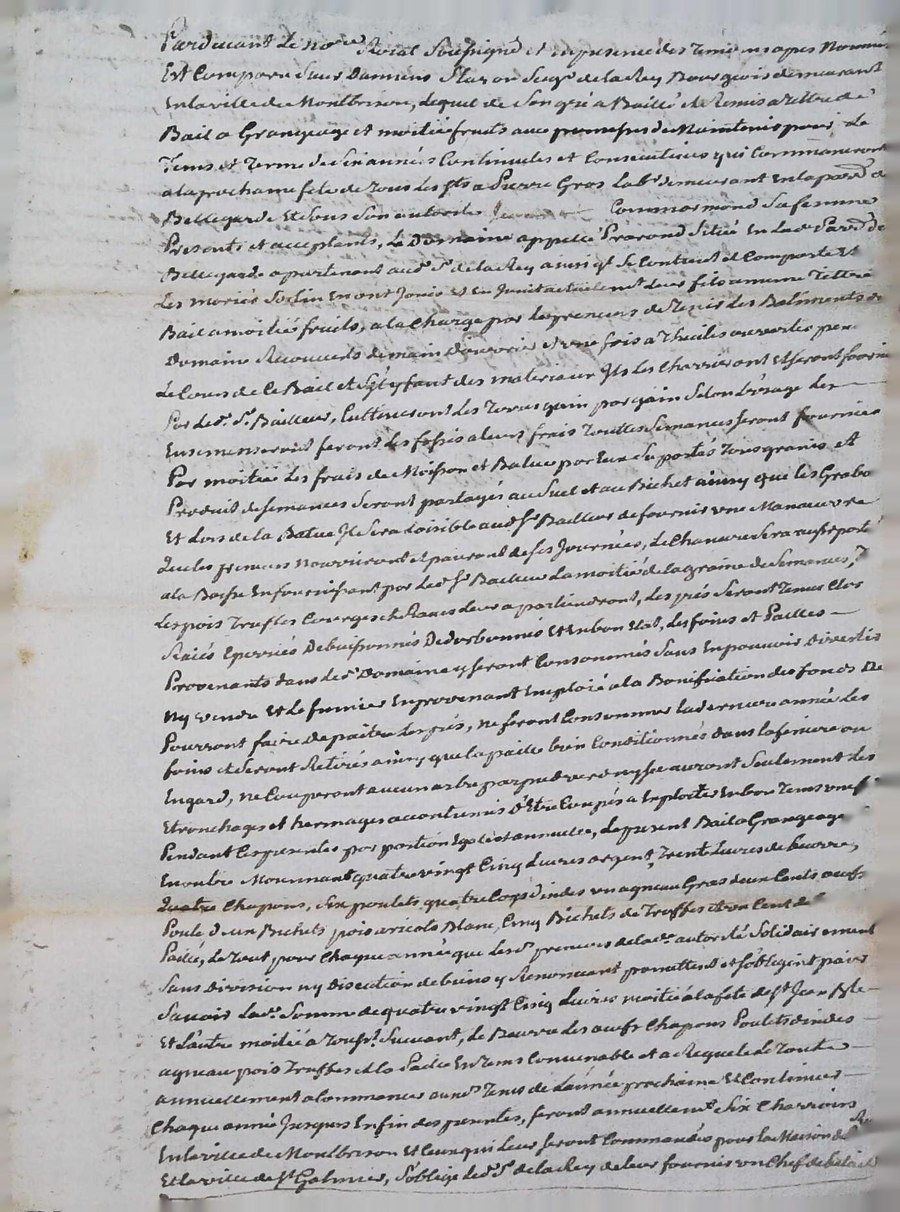 Pardevant Le no.re Roial Soussigné et en presence des Temoins apres Nommés
Est Comparu Sieur Damiens Seig.r de la Rey Bourgeois demeurant
En la ville de Montbrison, Lequel de Son gré a Baillé et Remis a Tittre de
Bail a Grangeage et moitié fruits avec promesse de Maintenir pour Le
Tems et Terme de Six années Continuelles et Consecutives qui Commanceront
a la prochaine fete de Tous les S.ts a Pierre Gros Lab.r demeurant en la par.sse de
Bellegarde Et Sous Son autorité Commarmond Sa femme
Presents et acceptants, Le Domaine appellé Prarond Sitüé En Lad. Par.sse de
Bellegarde apartenant aud. S.r de la Rey ainsi q.l Se Contient et Comporte Et
Les mariés En ont Joüis Et En Jouit actuellem.t Leur fils a meme Tittre
Bail a moitié fruits, a la Charge par les preneurs de Tenir Les Batiments du
Domaine Recouverts de main d'ouvrier et une fois a Thuiles ouvertes pen
Le Cours de Ce Bail et S'il y faut des materiaux Ils Les Charrieront Et Seront fournis
Par Led. S.r Bailleur, Cultiveront Les Terres gain par gain Selon L'usage Les
Ensemenceront feront Les fossés a leurs frais Touttes Semances Seront fournies
Par moitié Les frais de Moisson et Batue par Eux Suportés Tous grains et
Produit de Semances Seront partagés au Suel et au Bichet ainsy que les Grabo
Et Lors de la Batue Il Sera Loisible aud. S.r Bailleur de fournir une Manoeuvre
Que les preneurs Nourriront et paieront de Ses Journées, Le Chanvre Sera aussy porté
a la Basse En fournissant par Led. S.r Bailleur La moitié de la graine de Semances,
Les pois Truffes Courges et Raves Leur apartiendront, Les prés Seront Tenus Clos
Raiés Eperriés Debuissonnés Dedarbonnés Et En bon Etat, Les foins et Pailles
Provenants dans Led. Domaine y Seront Consommés Sans En pouvoir divertir
Ny vendre Et Le fumier En provenant Emploié a la Bonification des fonds Ne
Pourront faire Depaitre Les prés, ne feront Consommer La derniere année Les
foins et Seront Retirés ainsy que la paille bien Conditionnés dans la feniere ou
Engard, ne Couperont aucun arbre par pied verd ny sec auront Seulement Les
Etronchages et hermages accoutumés D'Etre Coupés a Exploiter En bon Tems une f.s
Pendant Ces presentes par portion Egale et annuelle, Le present Bail a Grangeage
En outre Moiennant quatre vingt Cinq Livres argent, Trente Livres de beurre,
Quatre Chapons, Six poulets quatre Coqs d'indes un agneau Gras deux Cents oeufs
Poule deux Bichets pois aricots Blanc, Cinq Bichets de Truffes et un Cent de
Paille, Le Tout pour Chaque année que Les d. preneurs de lad. autorité Solidairement
Sans Division ny Discution de biens y Renonceant promettent et S'obligent paier
Savoir Lad. Somme de quatre vingt Cinq Livres moitié a la fete de S.t Jean B.te
Et L'autre moitié a Touss.t Suivant, Le Beurre Les oeufs Chapons Poulets dindes
agneau pois Truffes et La Paille En Tems Convenable et a Requete Le Toutte
annuellement a Commancer aux d. Tems de L'année prochaine Et Continuer
Chaque année Jusques En fin des presentes, feront annuellem.t Six Charrois
En la ville de Montbrison Et Ceux qui Leur Seront Commandés pour la Maison de
Et la ville de S.t Galmier, S'oblige Led. S.r de la Rey de leur fournir un Chef de betail